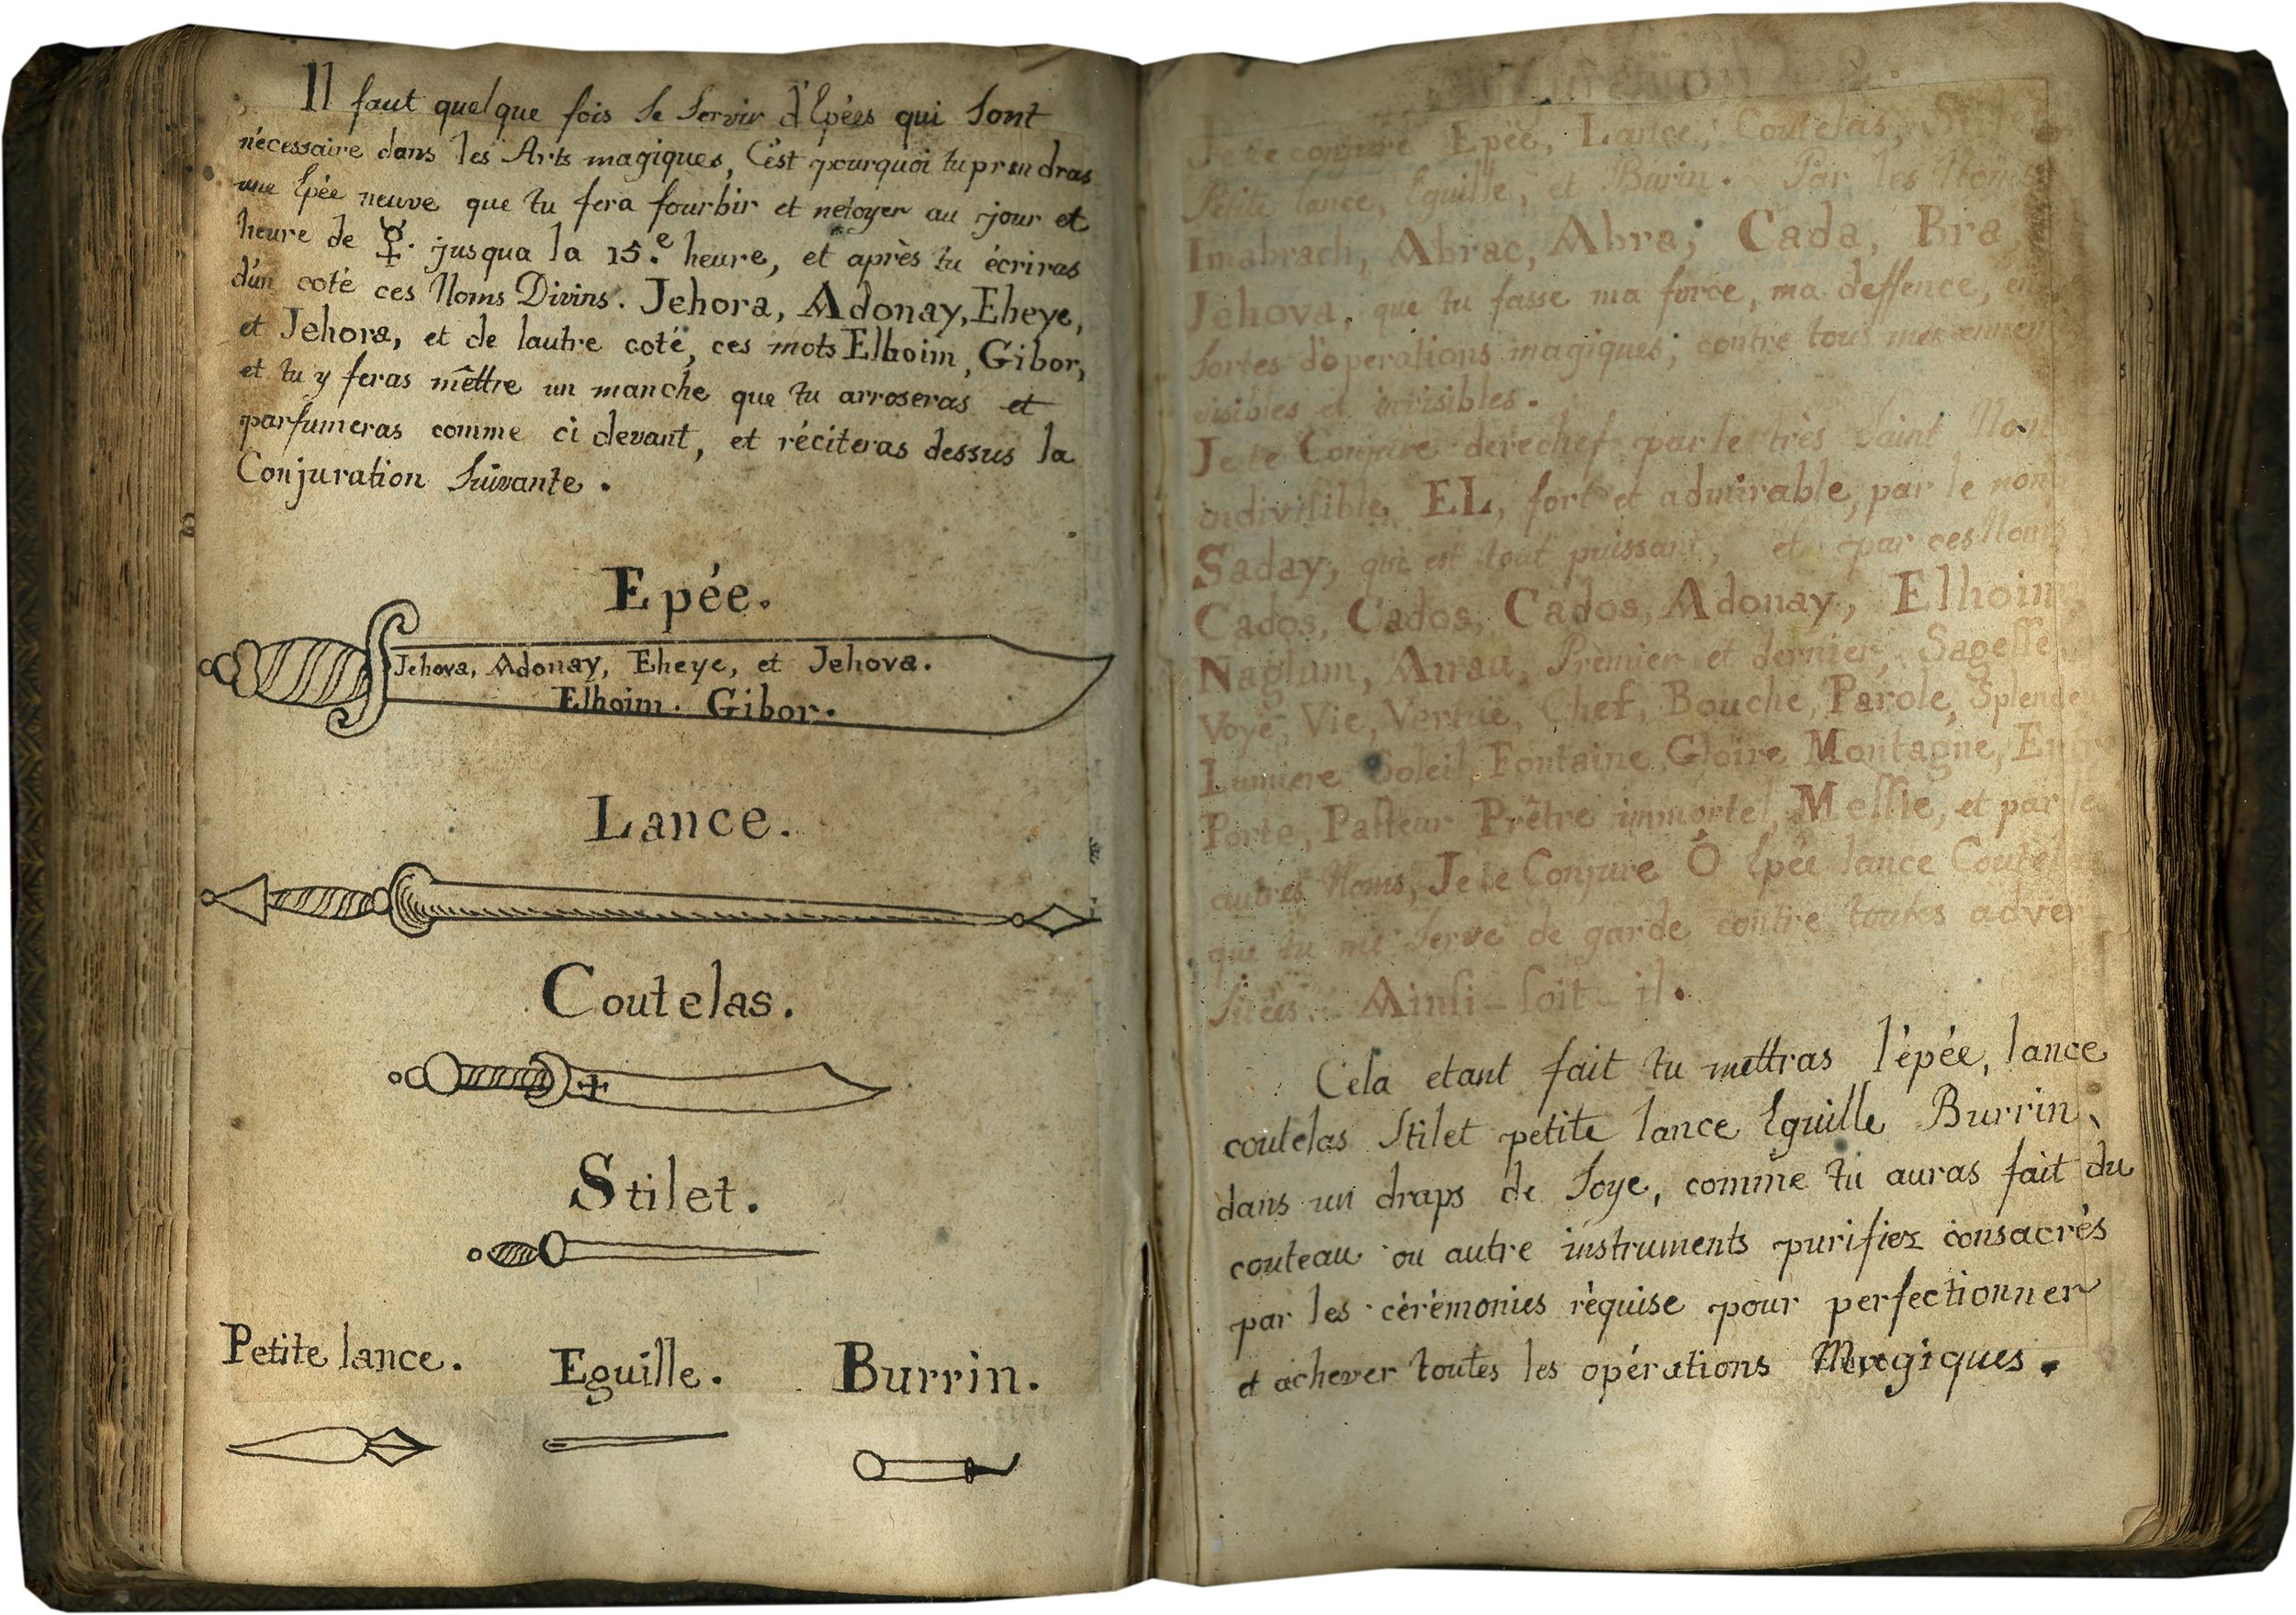 Il faut quelque fois se servir d'Epées qui sont
nécessaire dans les Arts magiques, C'est pourquoi tu prendras
une Epée neuve que tu fera fourbir et netoyer au jour et
heure de ☿. jusqua la 15.e heure, et après tu écriras
d'un coté ces Noms Divins. Jehora, Adonay, Eheye,
et Jehora, et de lautre coté, ces mots Elhoim, Gibor,
et tu y feras mêttre un manche que tu arroseras et
parfumeras comme ci devant, et réciteras dessus la
Conjuration Suivante.
Epée.
Jehova, Adonay, Eheye, et Jehova.
Elhoim. Gibor.
Lance.
Coutelas.
Stilet.
Petite lance.
Eguille.
Burrin.
Je te conjure Epée, Lance, Coutelas,
Petite lance, Eguille, et Burin. Par les Noms
Imabrach, Abrac, Abra, Cada, Bra,
Jehova, que tu fasse ma force, ma deffence, en
sortes d'operations magiques, contre tous mes ennem
visibles et invisibles.
Je te Conjure derechef par le très Saint Nom
indivisible EL, fort et admirable, par le nom
Saday, qui est tout puissant, et par ces Noms
Cados, Cados, Cados, Adonay, Elhoim,
Naglum, Premier et dernier, Sagesse
Voye, Vie, Vertuë, Chef, Bouche, Parole, Splende
Lumiere Soleil, Fontaine Gloire Montagne,
Porte, Pasteur Prêtre immortel, Messie, et par le
autres Noms, Je te Conjure Ô Epée lance Coutelas
que tu me serve de garde contre toutes adver-
sitées. Ainsi-soit-il.
Cela etant fait tu mettras l'épée, lance
coutelas Stilet petite lance Eguille Burrin,
dans un draps de Soye, comme tu auras fait du
couteau ou autre instruments purifiez consacrés
par les cérémonies réquise pour perfectionner
et achever toutes les opérations Magiques.